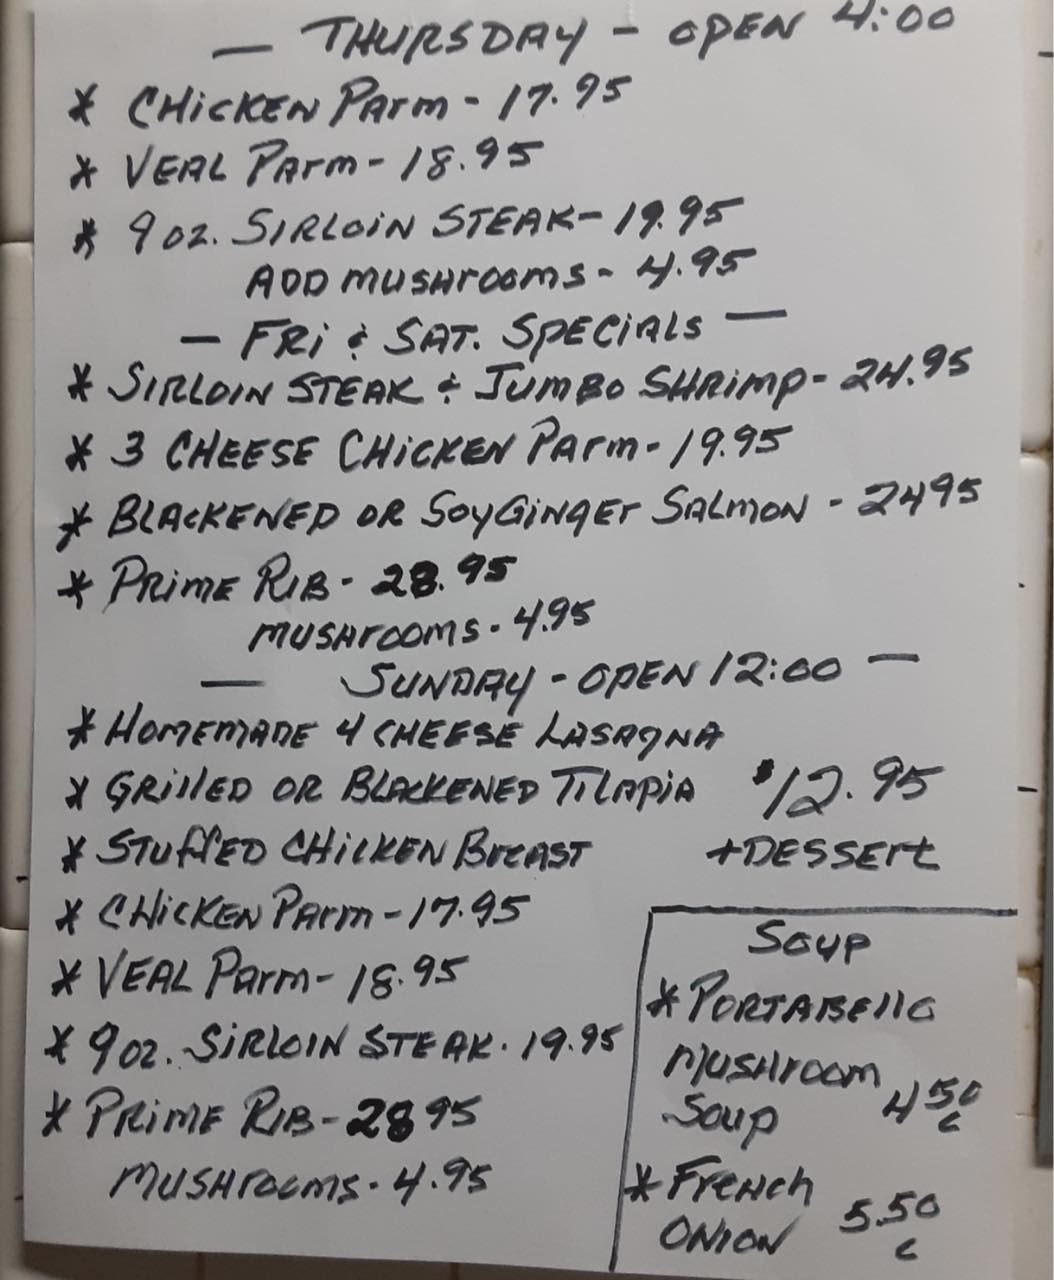 — THURSDAY - OPEN 4:00
* CHICKEN Parm - 17.95
* VEAL Parm - 18.95
* 9 oz. SIRLOIN STEAK - 19.95
ADD MUSHrooms - 4.95
— FRi & SAT. SPECIALS —
* SIRLOIN STEAK & JUMBO SHRIMP - 24.95
* 3 CHEESE CHICKEN Parm - 19.95
* BLACKENED OR SoyGiNgEr SALMON - 2495
* PRIME RIB - 28.95
MUSHrooms - 4.95
— SUNDAY - OPEN 12:00 —
* HOMEMADE 4 CHEESE LASAgNA
* GRIllED OR BLACKENED TILAPIA $12.95
* STUffED CHICKEN BrEAST +DESSErt
* CHICKEN Parm - 17.95
* VEAL Parm - 18.95
* 9 oz. SIRLOIN STEAK - 19.95
* PRIME RIB - 28 95
MUSHrooms - 4.95
Soup
* PORTABEllo
MUSHroom
Soup 4 50 c
* FrENch
ONION 5.50 c